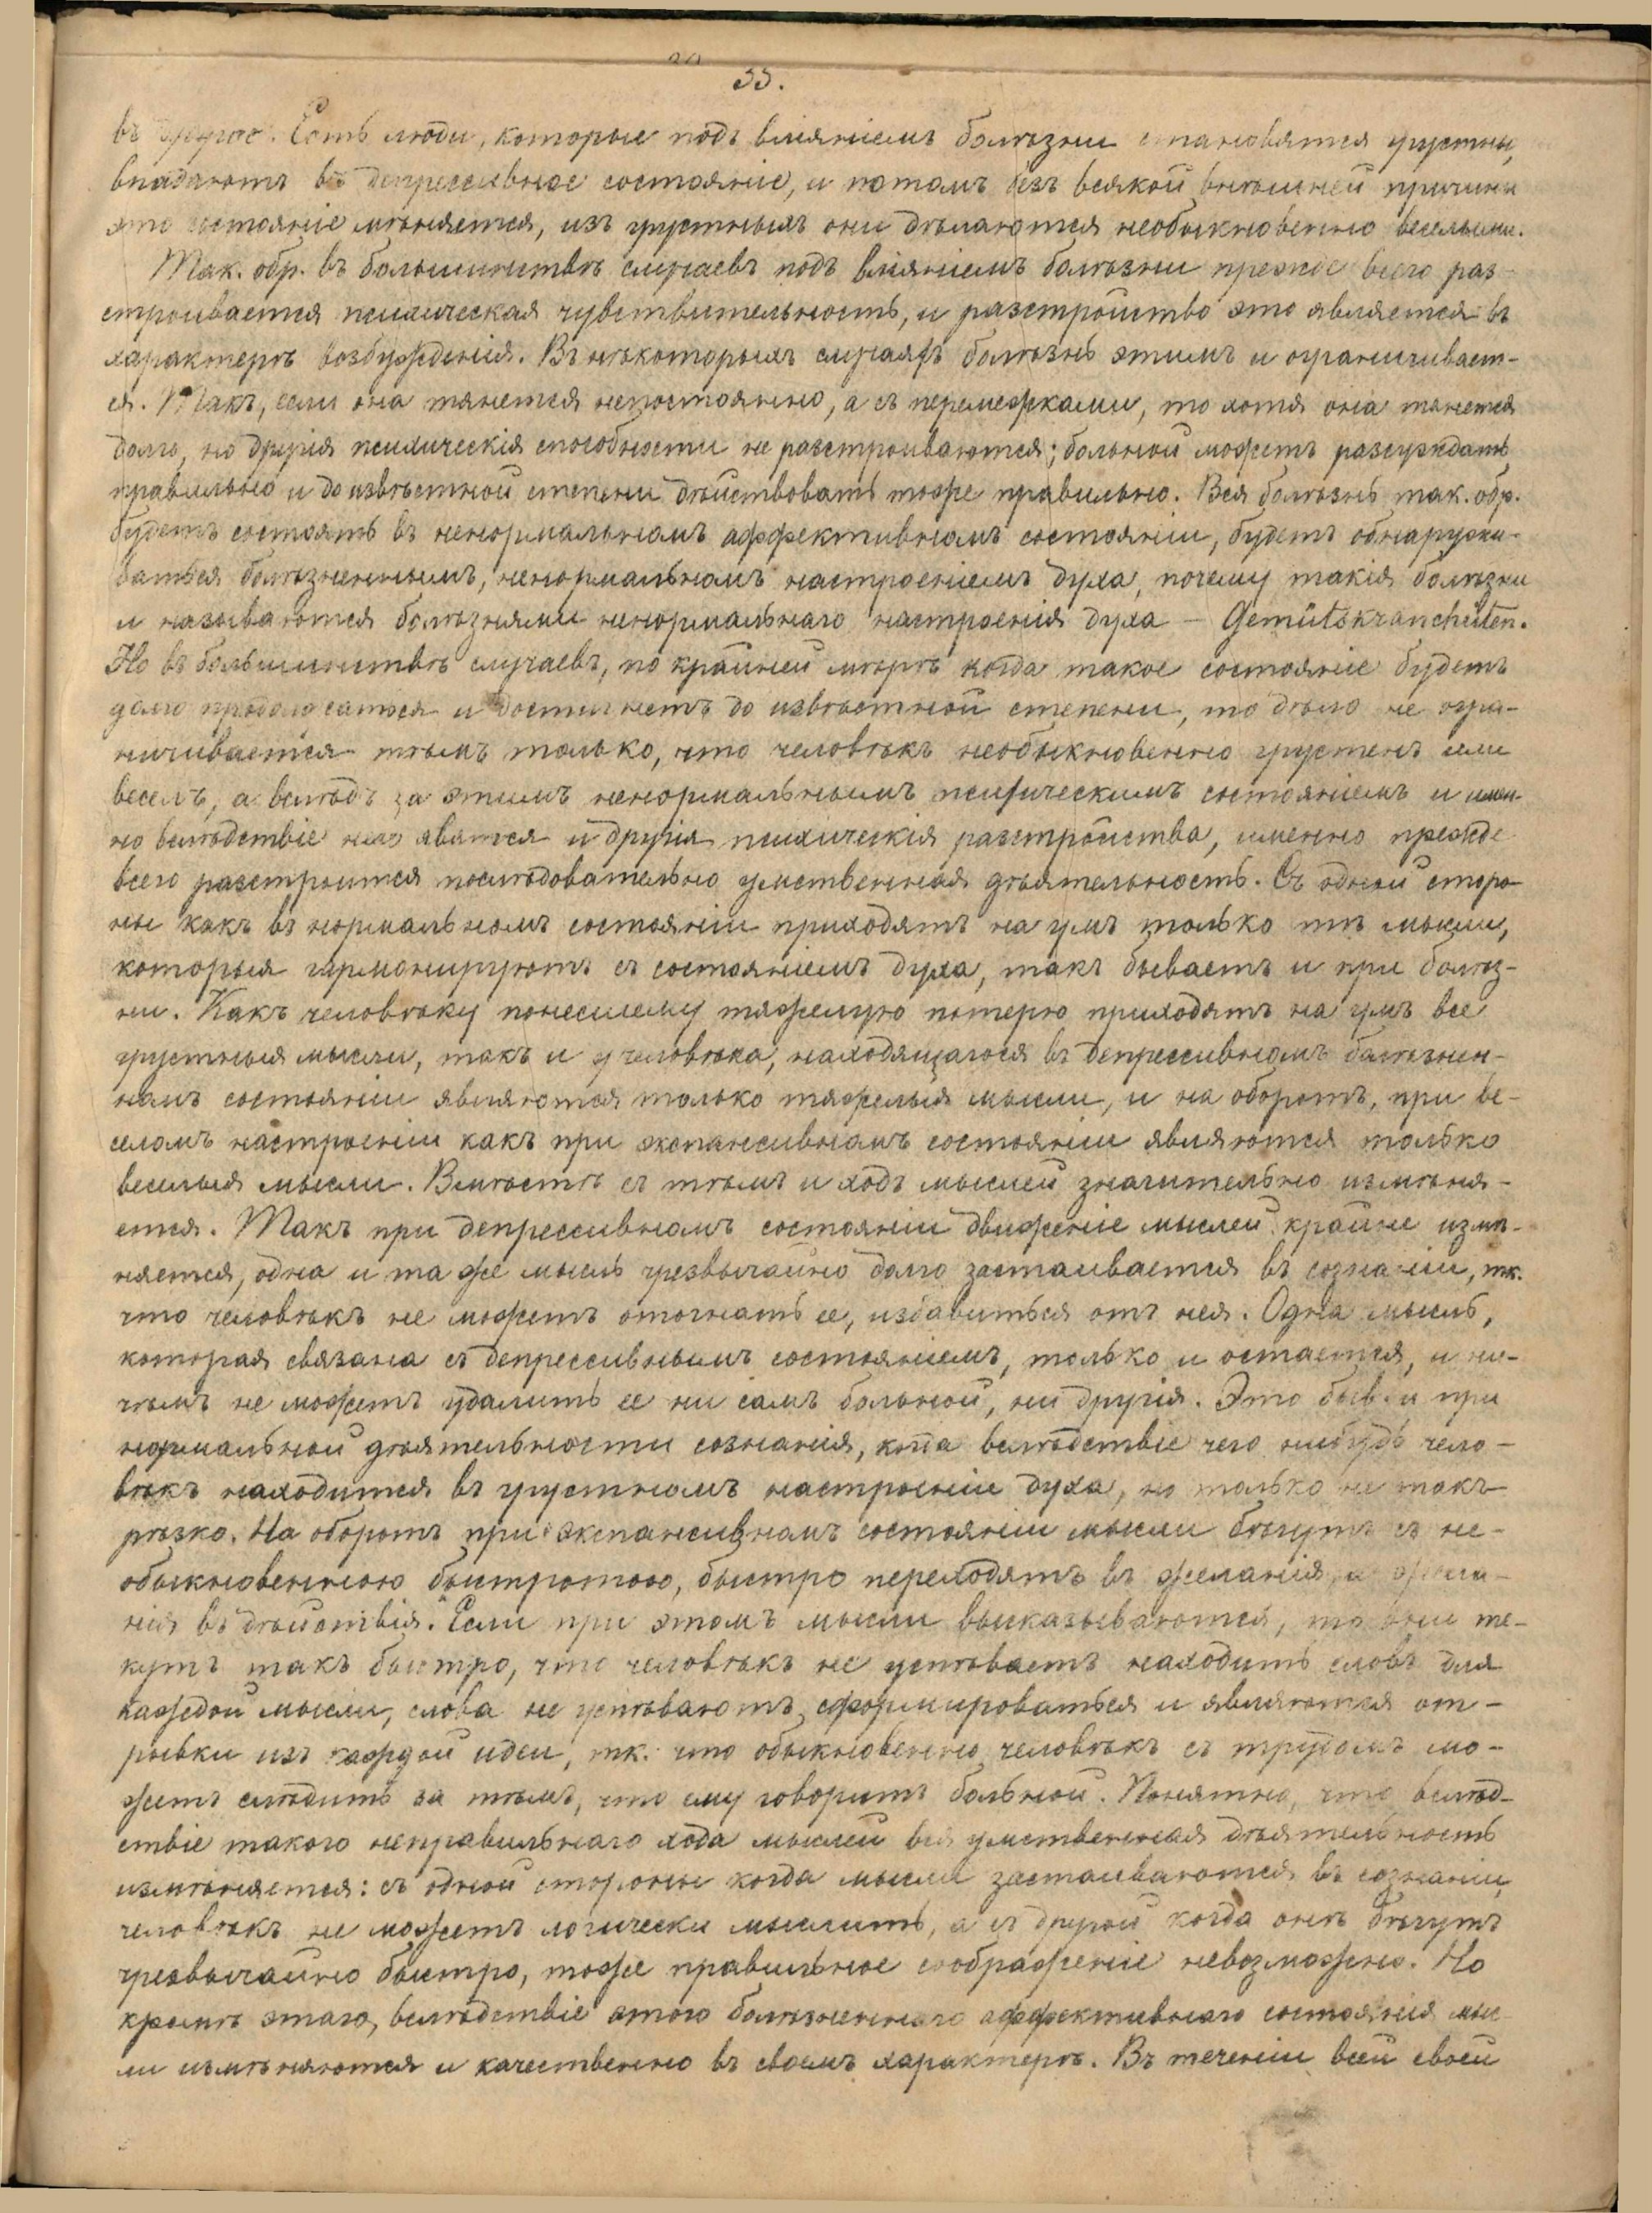 33.
въ другое. Есть люди, которые подъ вліяніемъ болѣзни становятся грустны,
впадаютъ въ депрессивное состояніе, и потомъ безъ всякой внѣшней причины
это состояніе мѣняется, изъ грустныхъ они дѣлаются необыкновенно веселыми.
Так. обр. въ большинствѣ случаевъ подъ вліяніемъ болѣзни прежде всего раз-
строивается психическая чувствительность, и разстройство это является въ
характерѣ возбужденія. Въ нѣкоторыхъ случаяхъ болѣзнь этимъ и ограничивает-
ся. Такъ, если она тянется непостоянно, а съ перемежками, то хотя она тянется
долго, но другія психическія способности не разстроиваются; больной можетъ разсуждать
правильно и до извѣстной степени дѣйствовать тоже правильно. Вся болѣзнь так. обр.
будетъ состоять въ ненормальномъ аффективномъ состояніи, будетъ обнаружи-
ваться болѣзненнымъ, ненормальномъ настроеніемъ духа, почему такія болѣзни
и называются болѣзнями ненормальнаго настроенія духа – Gemütskrancheiten.
Но въ большинствѣ случаевъ, по крайней мѣрѣ когда такое состояніе будетъ
долго продолжаться и достигнетъ до извѣстной степени, то дѣло не огра-
ничивается тѣмъ только, что человѣкъ необыкновенно грустенъ или
веселъ, а вслѣдъ за этимъ ненормальнымъ психическимъ состояніемъ и имен-
но вслѣдствіе него явятся и другія психическія разстройства, именно прежде
всего разстроится послѣдовательно умственная дѣятельность. Съ одной сторо-
ны какъ въ нормальномъ состояніи приходятъ на умъ только тѣ мысли,
которыя гармонируютъ съ состояніемъ духа, такъ бываетъ и при болѣз-
ни. Какъ человѣку понесшему тяжелую потерю приходятъ на умъ все
грустныя мысли, такъ и у человѣка, находящагося въ депрессивномъ болѣзнен-
номъ состояніи являются только тяжелыя мысли, и на оборотъ, при ве-
селомъ настроеніи какъ при экспансивномъ состояніи являются только
веселыя мысли. Вмѣстѣ съ тѣмъ и ходъ мыслей значительно измѣня-
ется. Такъ при депрессивномъ состояніи движеніе мыслей крайне измѣ-
няется, одна и та же мысль чрезвычайно долго застаивается въ сознаніи, тк.
что человѣкъ не можетъ отогнать ее, избавиться отъ нея. Одна мысль,
которая связана съ депрессивнымъ состояніемъ, только и остается, и ни-
чѣмъ не можетъ удалить ее ни самъ больной, ни другія. Это быв. и при
нормальной дѣятельности сознанія, когда вслѣдствіе чего нибудь чело-
вѣкъ находится въ грустномъ настроеніи духа, но только не такъ
рѣзко. На оборотъ при экспансивномъ состояніи мысли бѣгутъ съ не-
обыкновенною быстротою, быстро переходятъ въ желанія, а жела-
нія въ дѣйствія. Если при этомъ мысли высказываются, то они те-
кутъ такъ быстро, что человѣкъ не успѣваетъ находить словъ для
каждой мысли, слова не успѣваютъ сформироваться и являются от-
рывки изъ каждой идеи, тк. что обыкновенно человѣкъ съ трудомъ мо-
жетъ слѣдить за тѣмъ, что ему говоритъ больной. Понятно, что вслѣд-
ствіе такого неправильнаго хода мыслей вся умственная дѣятельность
измѣняется: съ одной стороны когда мысли застаиваются въ сознаніи,
человѣкъ не можетъ логически мыслить, а съ другой когда онѣ бѣгутъ
чрезвычайно быстро, тоже правильное соображеніе невозможно. Но
кромѣ этаго, вслѣдствіе этого болѣзненнаго аффективнаго состоянія мыс-
ли измѣняются и качественно въ своемъ характерѣ. Въ теченіи всей своей